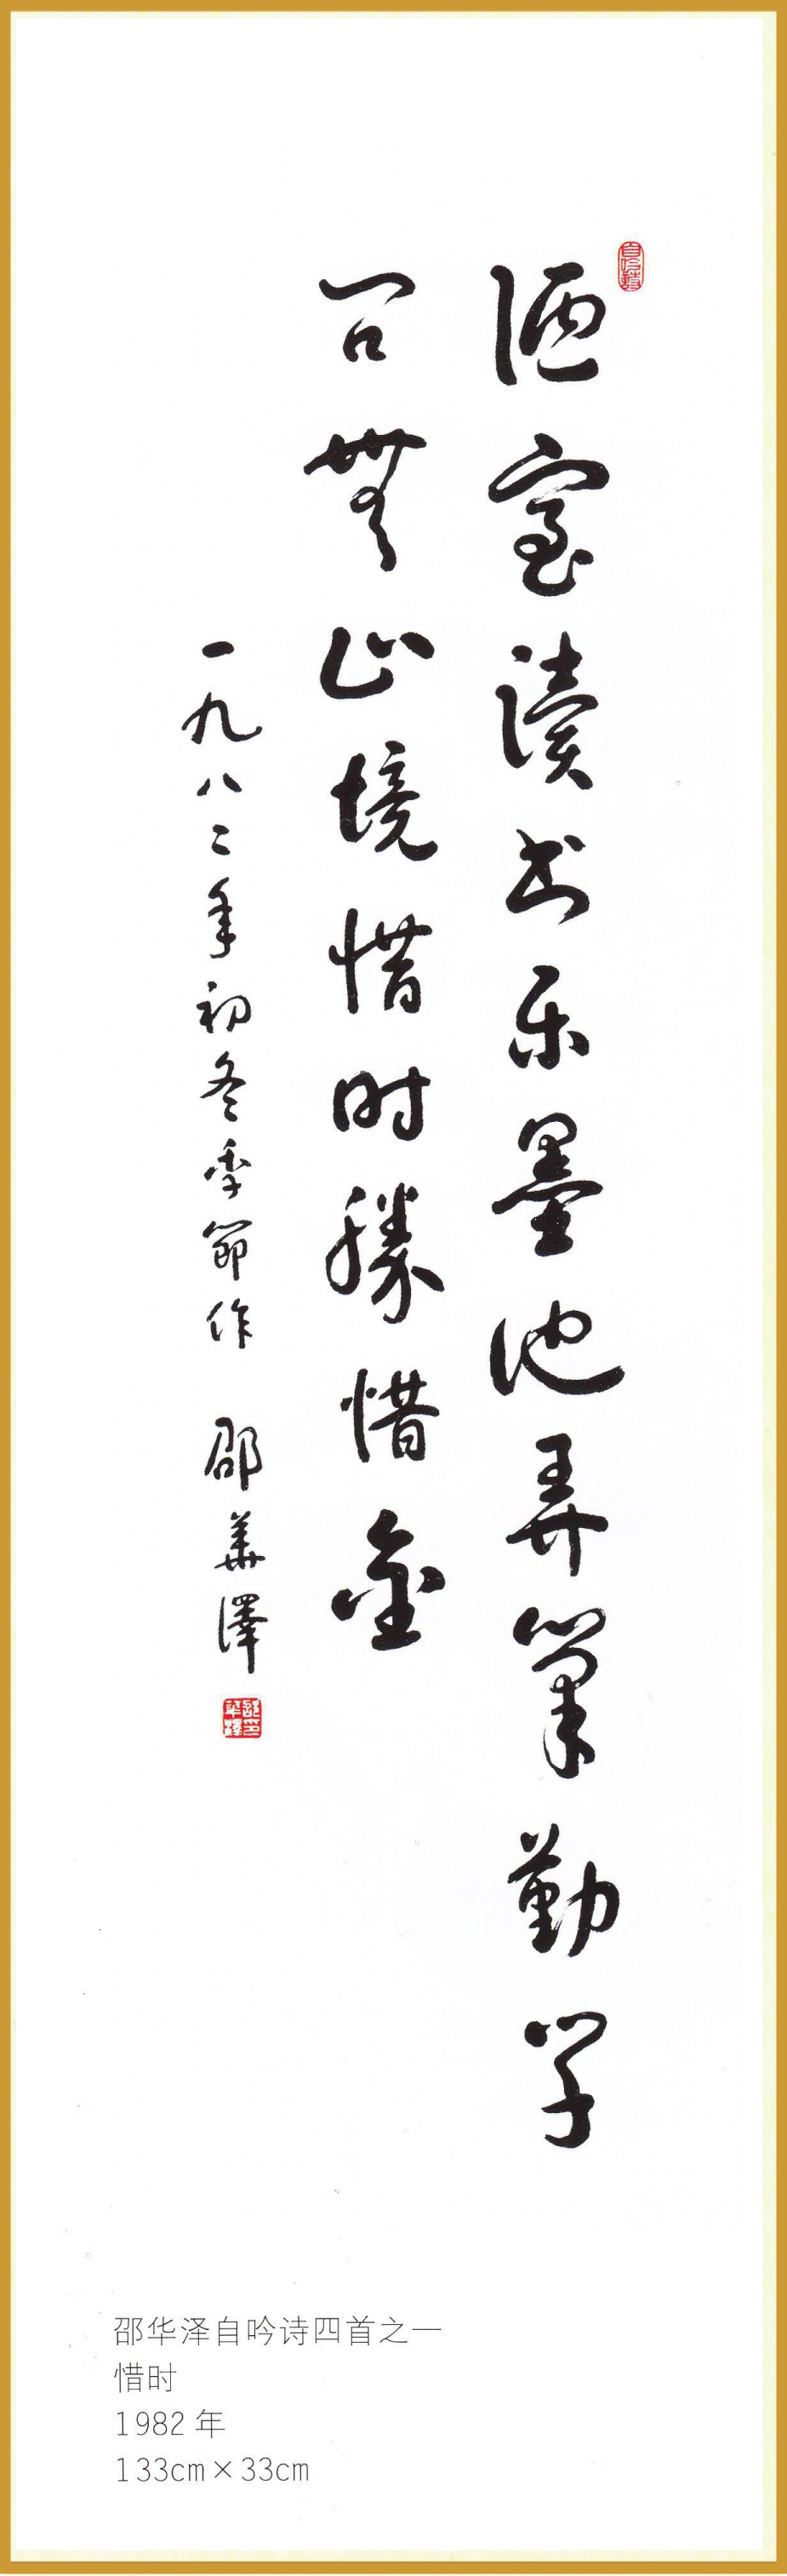 陋室读书乐墨池弄笔勤学
问无止境惜时胜惜金
一九八二年初冬季节作 邵华泽
邵华泽自吟诗四首之一
惜时
1982年
133cm×33cm